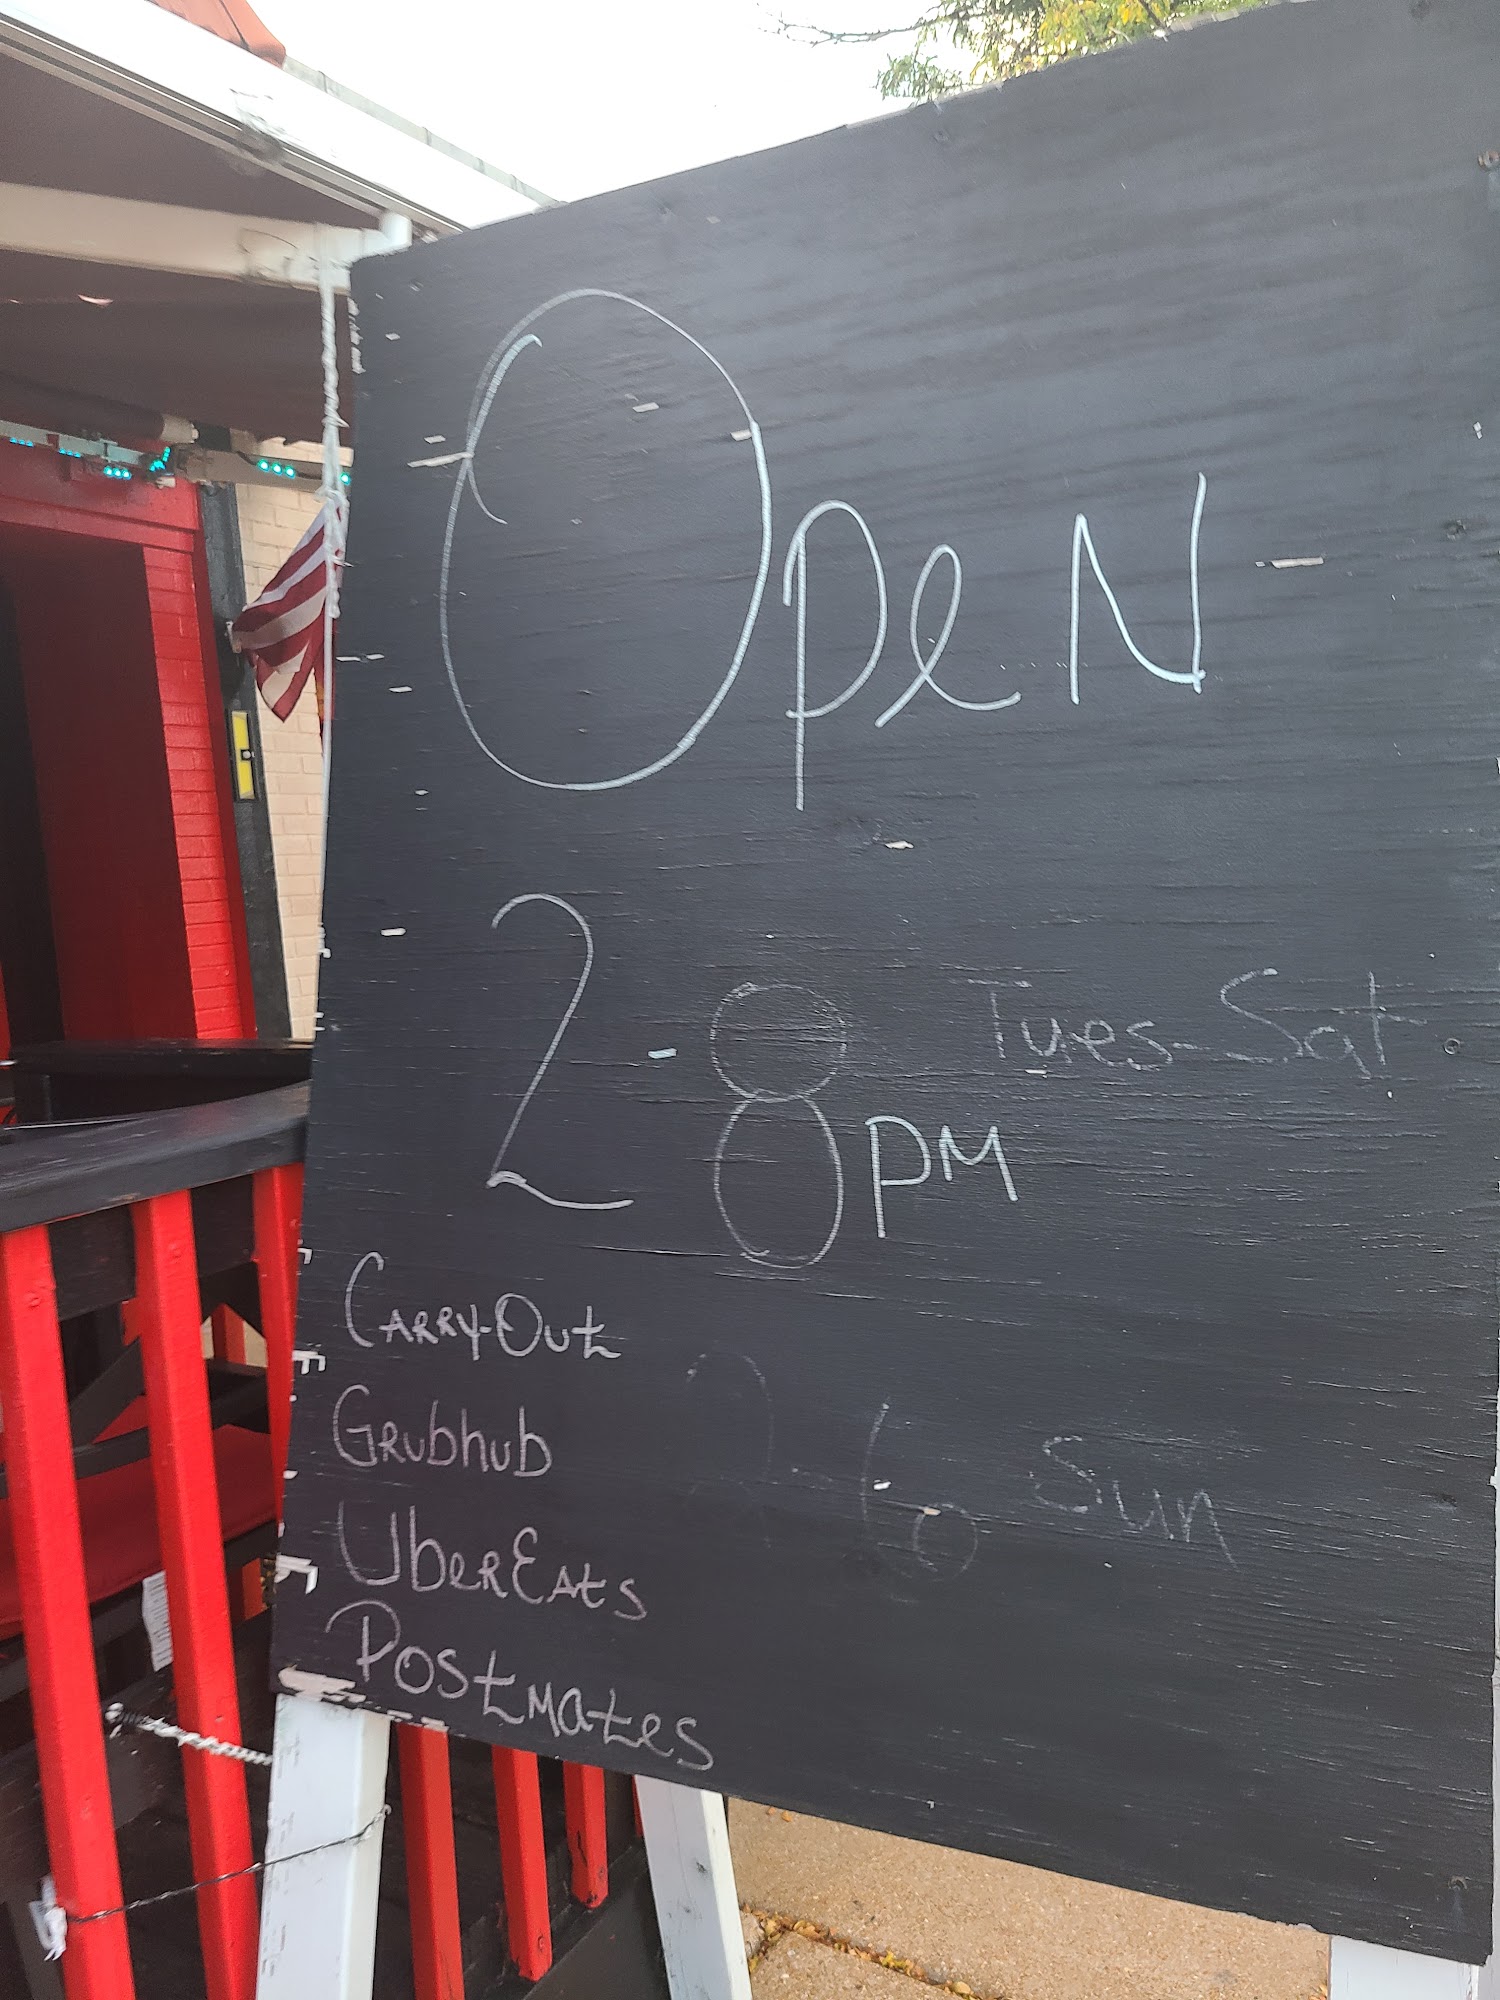 Open
2-8PM Tues-Sat
Carry-Out
Grubhub
2-6 Sun
UberEats
Postmates